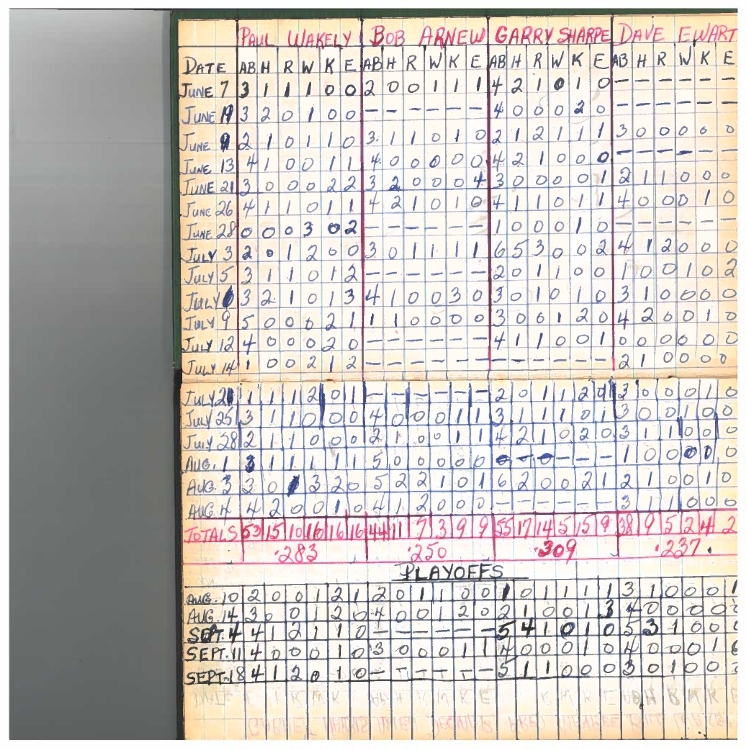 PAUL WAKELY BOB ARNEW GARRY SHARPE DAVE EWART
DATE AB H R W K E AB H R W K E AB H R W K E AB H R W K E
JUNE 7 3 1 1 1 0 0 2 0 0 1 1 1 4 2 1 0 1 0 – – – – – –
JUNE 3 2 0 1 0 0 – – – – – – 4 0 0 0 2 0 – – – – – –
JUNE 9 2 1 0 1 1 0 3 1 1 0 1 0 2 1 2 1 1 1 3 0 0 0 0 0
JUNE 13 4 1 0 0 1 1 4 0 0 0 0 0 4 2 1 0 0 0 – – – – – –
JUNE 21 3 0 0 0 2 2 3 2 0 0 0 4 3 0 0 0 0 1 2 1 1 0 0 0
JUNE 26 4 1 1 0 1 1 4 2 1 0 1 0 4 1 1 0 1 1 4 0 0 0 1 0
JUNE 28 0 0 0 3 0 2 – – – – – – 1 0 0 0 1 0 – – – – – –
JULY 3 2 0 1 2 0 0 3 0 1 1 1 1 6 5 3 0 0 2 4 1 2 0 0 0
JULY 5 3 1 1 0 1 2 – – – – – – 2 0 1 1 0 0 1 0 0 1 0 2
JULY 3 2 1 0 1 3 4 1 0 0 3 0 3 0 1 0 1 0 3 1 0 0 0 0
JULY 9 5 0 0 0 2 1 1 1 0 0 0 0 3 0 0 1 2 0 4 2 0 0 1 0
JULY 12 4 0 0 0 2 0 – – – – – – 4 1 1 0 0 1 0 0 0 0 0 0
JULY 14 1 0 0 2 1 2 – – – – – – – – – – – – 2 1 0 0 0 0
JULY 2 1 1 1 2 0 1 – – – – – – 2 0 1 1 2 0 3 0 0 0 1 0
JULY 25 3 1 1 0 0 0 4 0 0 0 1 1 3 1 1 1 0 1 3 0 0 1 0 0
JULY 28 2 1 1 0 0 0 2 1 0 0 1 1 4 2 1 0 2 0 3 1 1 0 0 0
AUG. 1 3 1 1 1 1 1 5 0 0 0 0 0 – – – – – – 1 0 0 0 1 0
AUG. 3 3 0 1 3 2 0 5 2 2 1 0 1 6 2 0 0 2 1 2 1 0 0 1 0
AUG. 4 4 2 0 0 1 0 4 1 2 0 0 0 – – – – – – 3 1 1 0 0 0
TOTALS 53 15 10 16 16 16 44 11 7 3 9 9 55 17 14 5 15 9 38 9 5 2 4 2
.283 .250 .309 .237.
PLAYOFFS
AUG. 10 2 0 0 1 2 1 2 0 1 1 0 0 1 0 1 1 1 1 3 1 0 0 0 1
AUG. 14 3 0 0 1 2 0 4 0 0 1 2 0 2 1 0 0 1 3 4 0 0 0 0 0
SEPT. 4 4 1 2 1 1 0 – – – – – – 5 4 1 0 1 0 5 3 1 0 0
SEPT. 11 4 0 0 0 1 0 3 0 0 0 1 1 4 0 0 0 1 0 4 0 0 0 1
SEPT. 18 4 1 2 0 1 0 – – – – – – 5 1 1 0 0 0 3 0 1 0 0